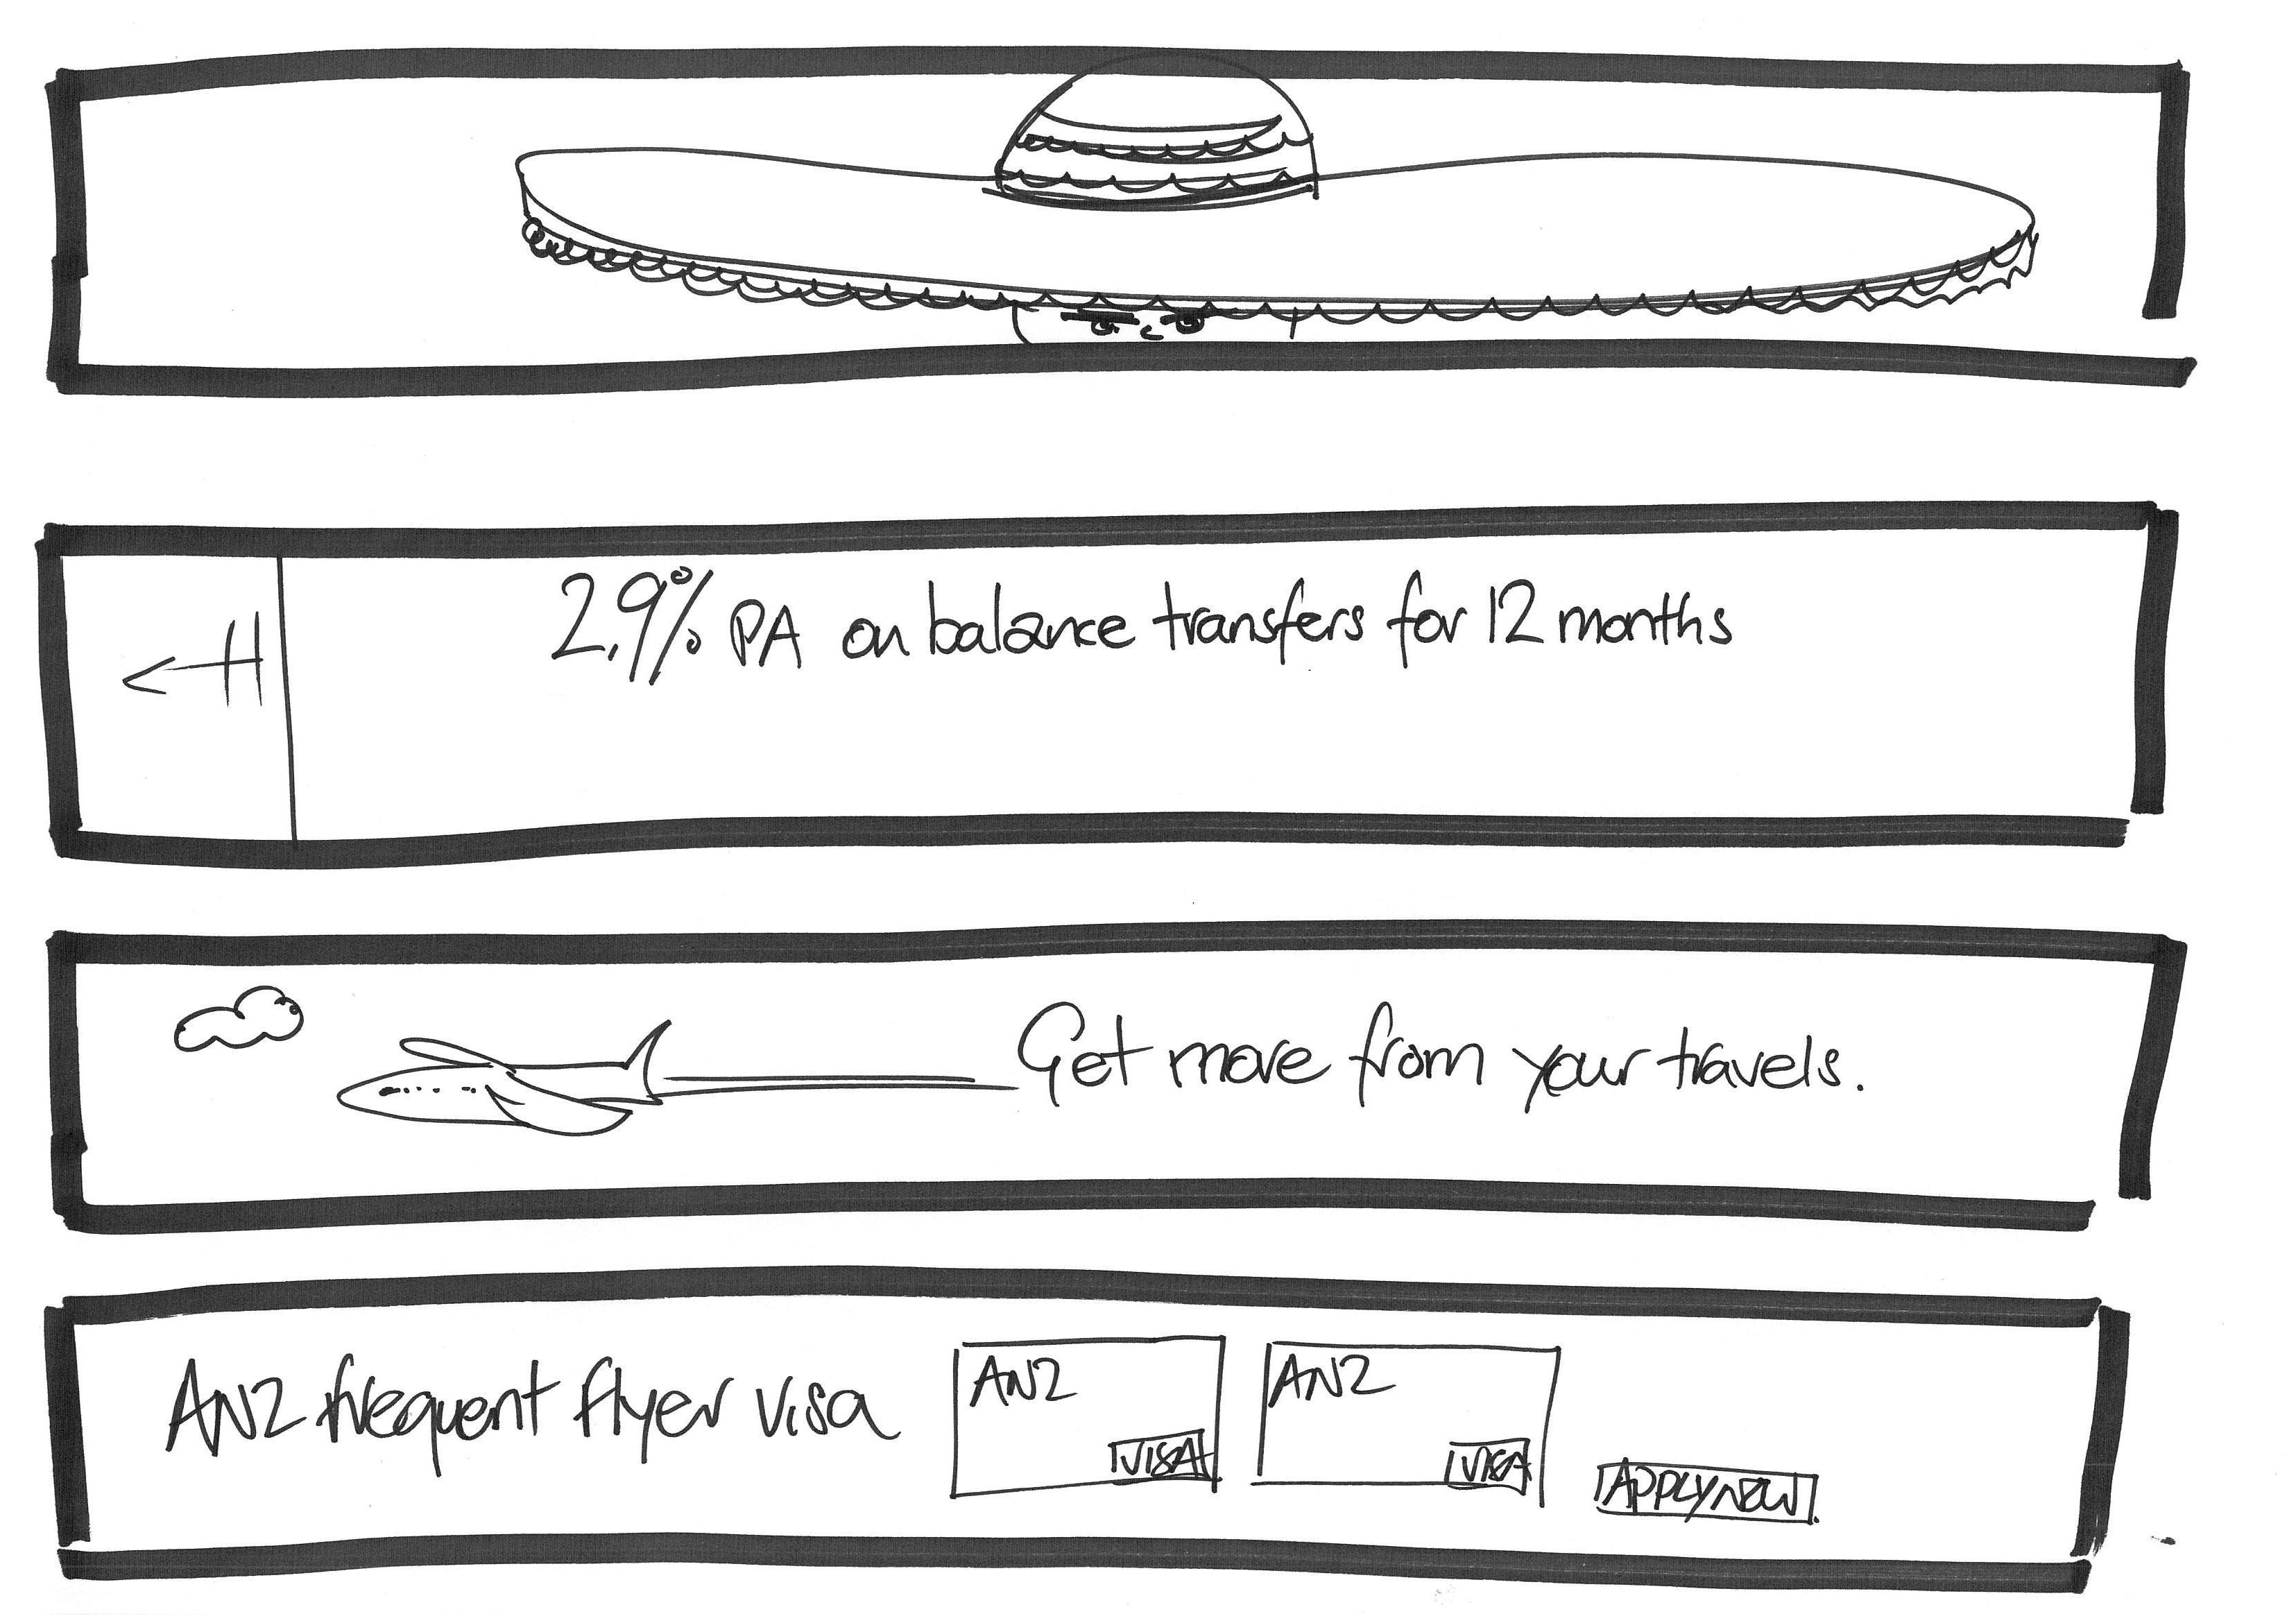 2.9% PA on balance transfers for 12 months
Get more from your travels.
ANZ frequent flyer visa
ANZ
VISA
ANZ
VISA
APPLY NOW